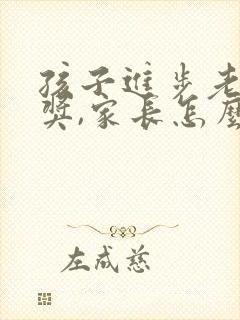 孩子进步老
奖,家长怎么
左成慈